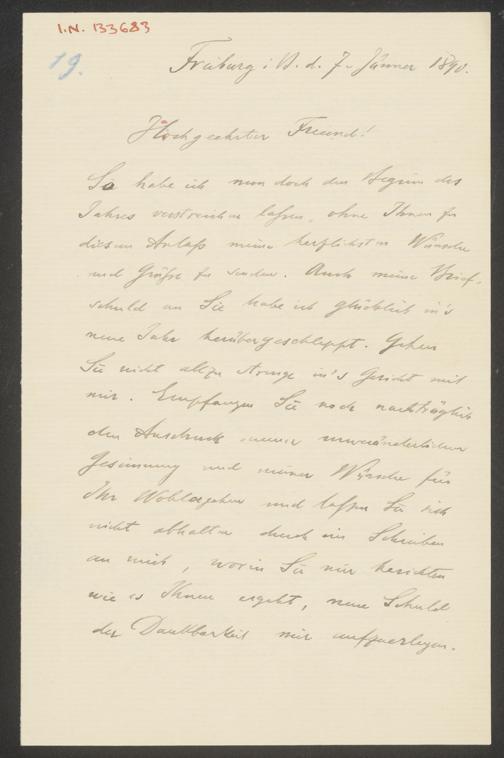 I.N. 133683
19.
Freiburg i. B. d. 7. Jänner 1890.
Hochgeehrter Freund!
So habe ich nun doch den Beginn des
Jahres verstreichen laßen, ohne Ihnen zu
diesem Anlaß meine herzlichsten Wünsche
und Grüße zu senden. Auch meine Brief-
schuld an Sie habe ich glücklich in's
neue Jahr herübergeschleppt. Gehen
Sie nicht allzu strenge in's Gericht mit
mir. Empfangen Sie noch nachträglich
den Ausdruck meiner unveränderlichen
Gesinnung und meiner Wünsche für
Ihr Wohlergehen und laßen Sie sich
nicht abhalten durch ein Schreiben
an mich, worin Sie mir berichten
wie es Ihnen ergeht, neue Schuld
der Dankbarkeit mir aufzuerlegen.